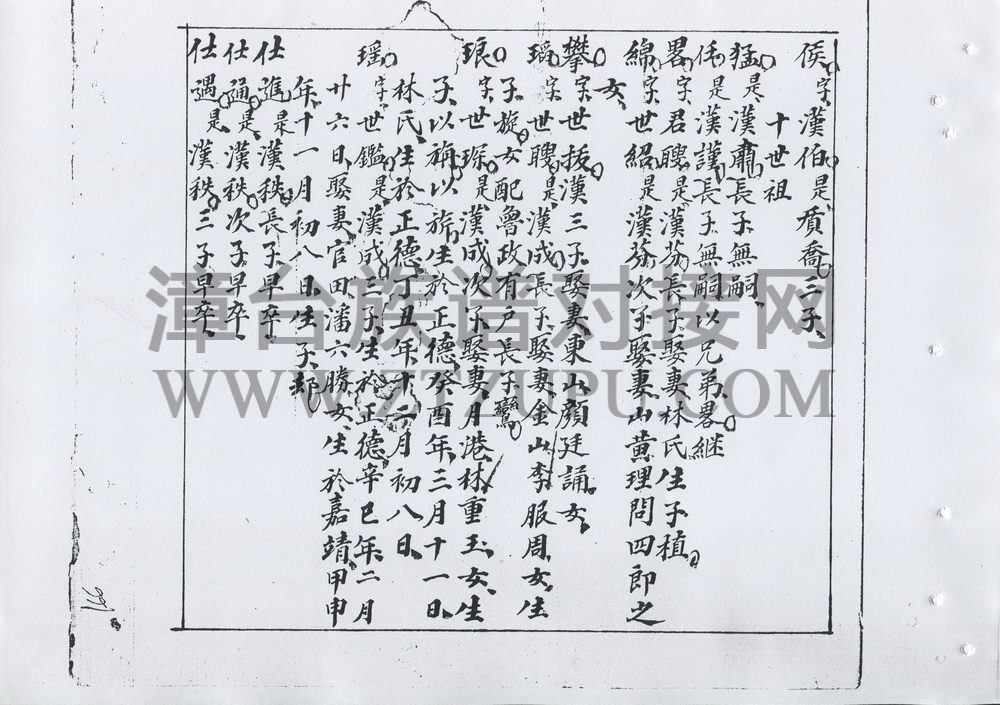 侯字漢伯是質喬三子
十世祖
猛是漢肅長子無嗣
任是漢謹長子無嗣以兄弟畧継
畧字君聰是漢芬長子娶妻林氏生子植
綿字世紹是漢芬次子娶妻山黄理問四郎之
女
攀字世援漢三子娶妻東山顔廷誦女
瑫字世聰是漢成長子娶妻金山李服周女生
子旋女配魯政有户長子鸞
琅字世琛是漢成次子娶妻月港林重玉女生
子以旃以旂生於正德癸酉年三月十一日
林氏生於正德丁丑年十二月初八日
瑶字世鑑是漢成三子生於正德辛巳年二月
廿六日娶妻官田潘六勝女生於嘉靖甲申
年十一月初八日生子
仕進是漢秩長子早卒
仕通是漢秩次子早卒
仕遇是漢秩三子早卒
漳台族谱对接网
WWW.ZTZUPU.COM